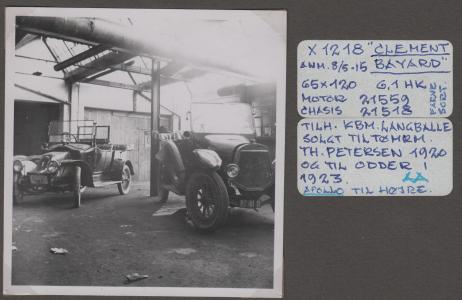 X1218 "CLEMENT
ANM. 8/5-15 BAYARD"
65x120 6,1 HK
MOTOR 21559
CHASIS 21518
FARVE
SORT.
TILH. KBM. LANGBALLE
SOLGT TIL TØMRM.
TH. PETERSEN 1920
OG TIL ODDER I
1923.
APOLLO TIL HØJRE.